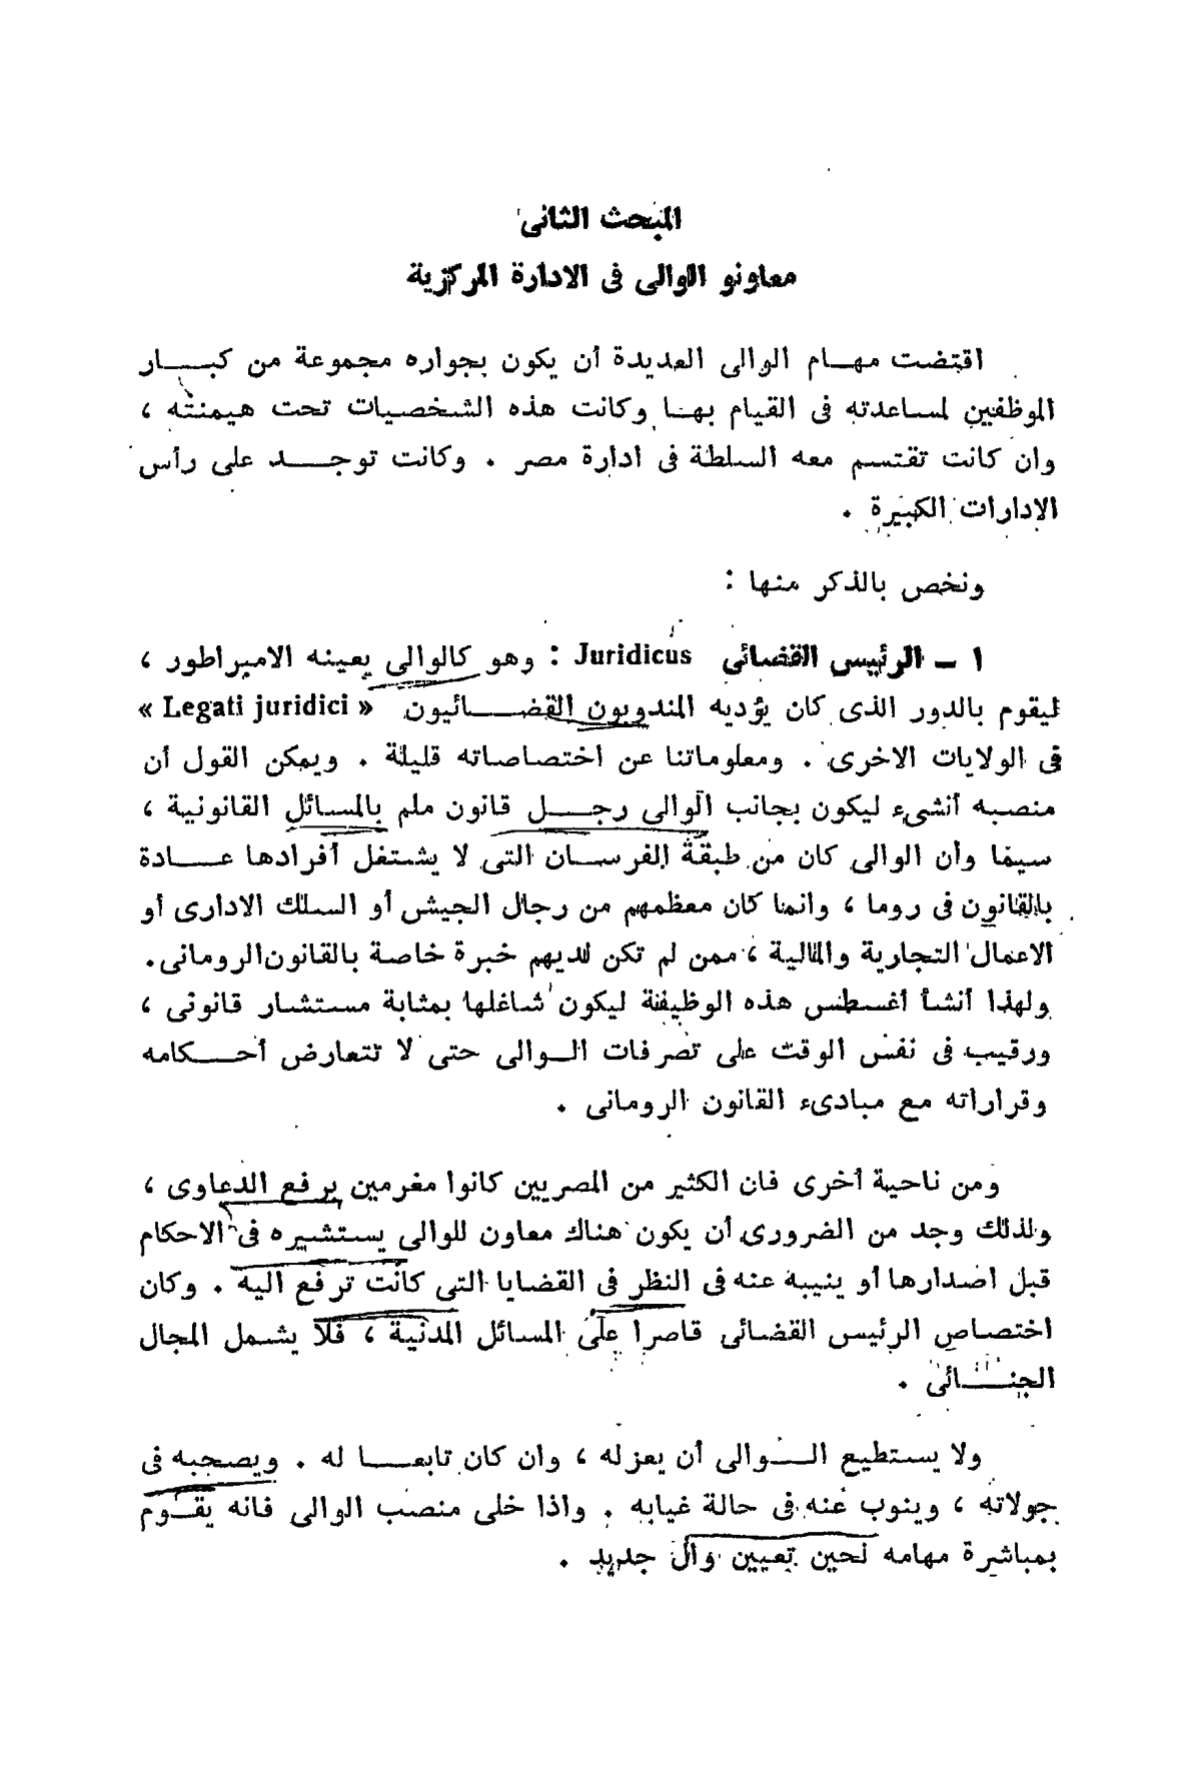 المبحث الثانى
معاونو الوالى فى الادارة المركزية
اقتضت مهام الوالى العديدة أن يكون بجواره مجموعة من كبار
الموظفين لمساعدته فى القيام بها وكانت هذه الشخصيات تحت هيمنته ،
وان كانت تقتسم معه السلطة فى ادارة مصر . وكانت توجد على رأس
الادارات الكبيرة .
ونخص بالذكر منها :
١ – الرئيس القضائى Juridicus : وهو كالوالى يعينه الامبراطور ،
ليقوم بالدور الذى كان يؤديه المندوبون القضائيون « Legati juridici »
فى الولايات الاخرى . ومعلوماتنا عن اختصاصاته قليلة . ويمكن القول أن
منصبه أنشىء ليكون بجانب الوالى رجل قانون ملم بالمسائل القانونية ،
سيما وأن الوالى كان من طبقة الفرسان التى لا يشتغل أفرادها عادة
بالقانون فى روما ، وانما كان معظمهم من رجال الجيش أو السلك الادارى أو
الاعمال التجارية والمالية ، ممن لم تكن لديهم خبرة خاصة بالقانون الرومانى .
ولهذا أنشأ أغسطس هذه الوظيفة ليكون شاغلها بمثابة مستشار قانونى ،
ورقيب فى نفس الوقت على تصرفات الوالى حتى لا تتعارض أحكامه
وقراراته مع مبادىء القانون الرومانى .
ومن ناحية أخرى فان الكثير من المصريين كانوا مغرمين برفع الدعاوى ،
ولذلك وجد من الضرورى أن يكون هناك معاون للوالى يستشيره فى الاحكام
قبل اصدارها أو ينيبه عنه فى النظر فى القضايا التى كانت ترفع اليه . وكان
اختصاص الرئيس القضائى قاصرا على المسائل المدنية ، فلا يشمل المجال
الجنائى .
ولا يستطيع الوالى أن يعزله ، وان كان تابعا له . ويصحبه فى
جولاته ، وينوب عنه فى حالة غيابه . واذا خلى منصب الوالى فانه يقوم
بمباشرة مهامه لحين تعيين وال جديد .